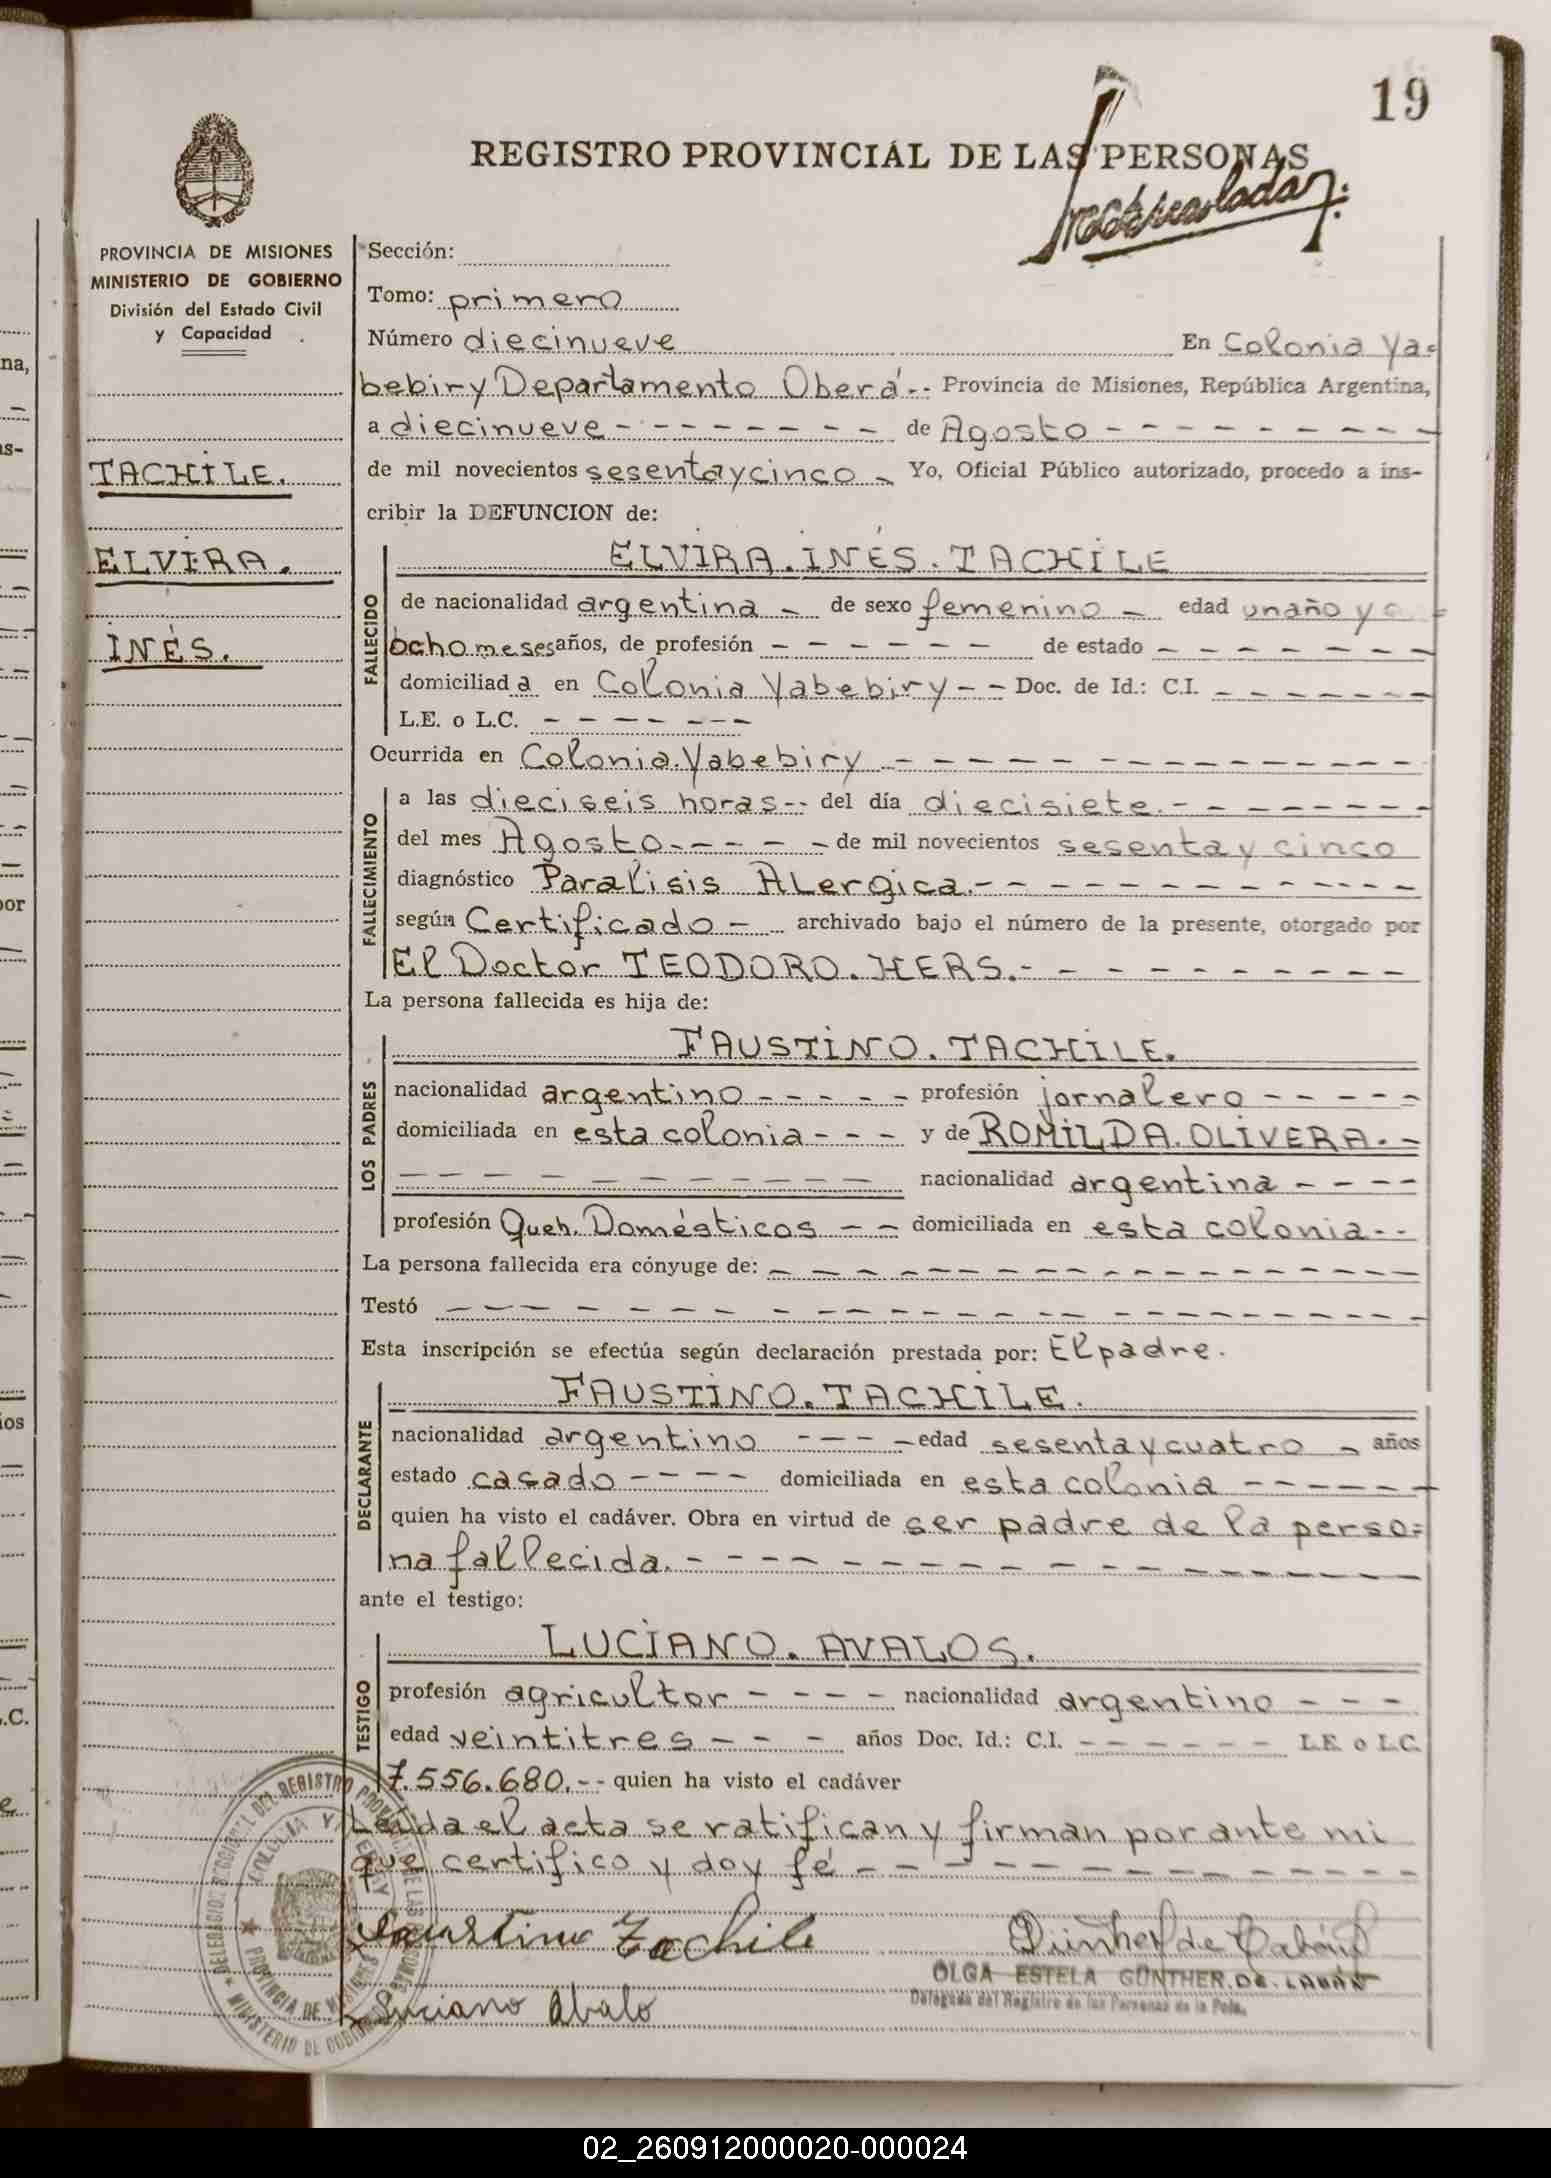 19
REGISTRO PROVINCIAL DE LAS PERSONAS
PROVINCIA DE MISIONES
MINISTERIO DE GOBIERNO
División del Estado Civil
y Capacidad
TACHILE.
ELVIRA.
INÉS.
Sección:
Tomo: primero
Número diecinueve En Colonia Ya=
bebiry Departamento Oberá-- Provincia de Misiones, República Argentina,
a diecinueve - - - - - - - - de Agosto - - - - - - - - -
de mil novecientos sesenta y cinco - Yo, Oficial Público autorizado, procedo a ins-
cribir la DEFUNCION de:
ELVIRA. INÉS. TACHILE
FALLECIDO
de nacionalidad argentina - de sexo femenino - edad un año y
ocho meses años, de profesión - - - - - - de estado - - - - - - -
domiciliada en Colonia Yabebiry - - Doc. de Id.: C.I. - - - - - -
L.E. o L.C. - - - - - - -
Ocurrida en Colonia. Yabebiry - - - - - - - - - - - - - -
FALLECIMIENTO
a las dieciseis horas-- del día diecisiete.- - - - - - - -
del mes Agosto - - - - - de mil novecientos sesenta y cinco
diagnóstico Paralisis Alergica.- - - - - - - - - - - - -
según Certificado - - archivado bajo el número de la presente, otorgado por
El Doctor TEODORO. HERS.- - - - - - - - - -
La persona fallecida es hija de:
FAUSTINO. TACHILE.
LOS PADRES
nacionalidad argentino - - - - - profesión jornalero - - - - -
domiciliada en esta colonia - - - y de ROMILDA. OLIVERA. -
- - - - - - - - - - nacionalidad argentina - - - -
profesión Queh. Domésticos - - domiciliada en esta colonia--
La persona fallecida era cónyuge de: - - - - - - - - - - - - - - -
Testó - - - - - - - - - - - - - - - - - - - -
Esta inscripción se efectúa según declaración prestada por: El padre.
FAUSTINO. TACHILE.
DECLARANTE
nacionalidad argentino - - - - edad sesenta y cuatro - años
estado casado - - - - domiciliada en esta colonia - - - - - -
quien ha visto el cadáver. Obra en virtud de ser padre de la perso=
na fallecida. - - - - - - - - - - - - - - - - -
ante el testigo:
LUCIANO. AVALOS.
TESTIGO
profesión agricultor - - - - nacionalidad argentino - - -
edad veintitres - - - años Doc. Id.: C.I. - - - - - - L.E. o L.C.
7.556.680.-- quien ha visto el cadáver
Leída el acta se ratifican y firman por ante mi
que certifico y doy fé - - - - - - - - - - - - -
Faustino Tachile
Luciano Abalo
OLGA ESTELA GÜNTHER DE
Delegada del Registro de las Personas de la Pcia.
02_260912000020-000024